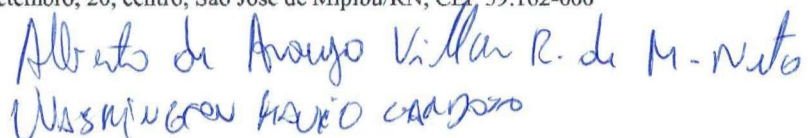 setembro, 20, centro, São José de Mipibu/RN, CEP 59.162-000
Alberto de Araujo Villar R. de M. Neto
WASHINGTON FLAVIO CARDOZO